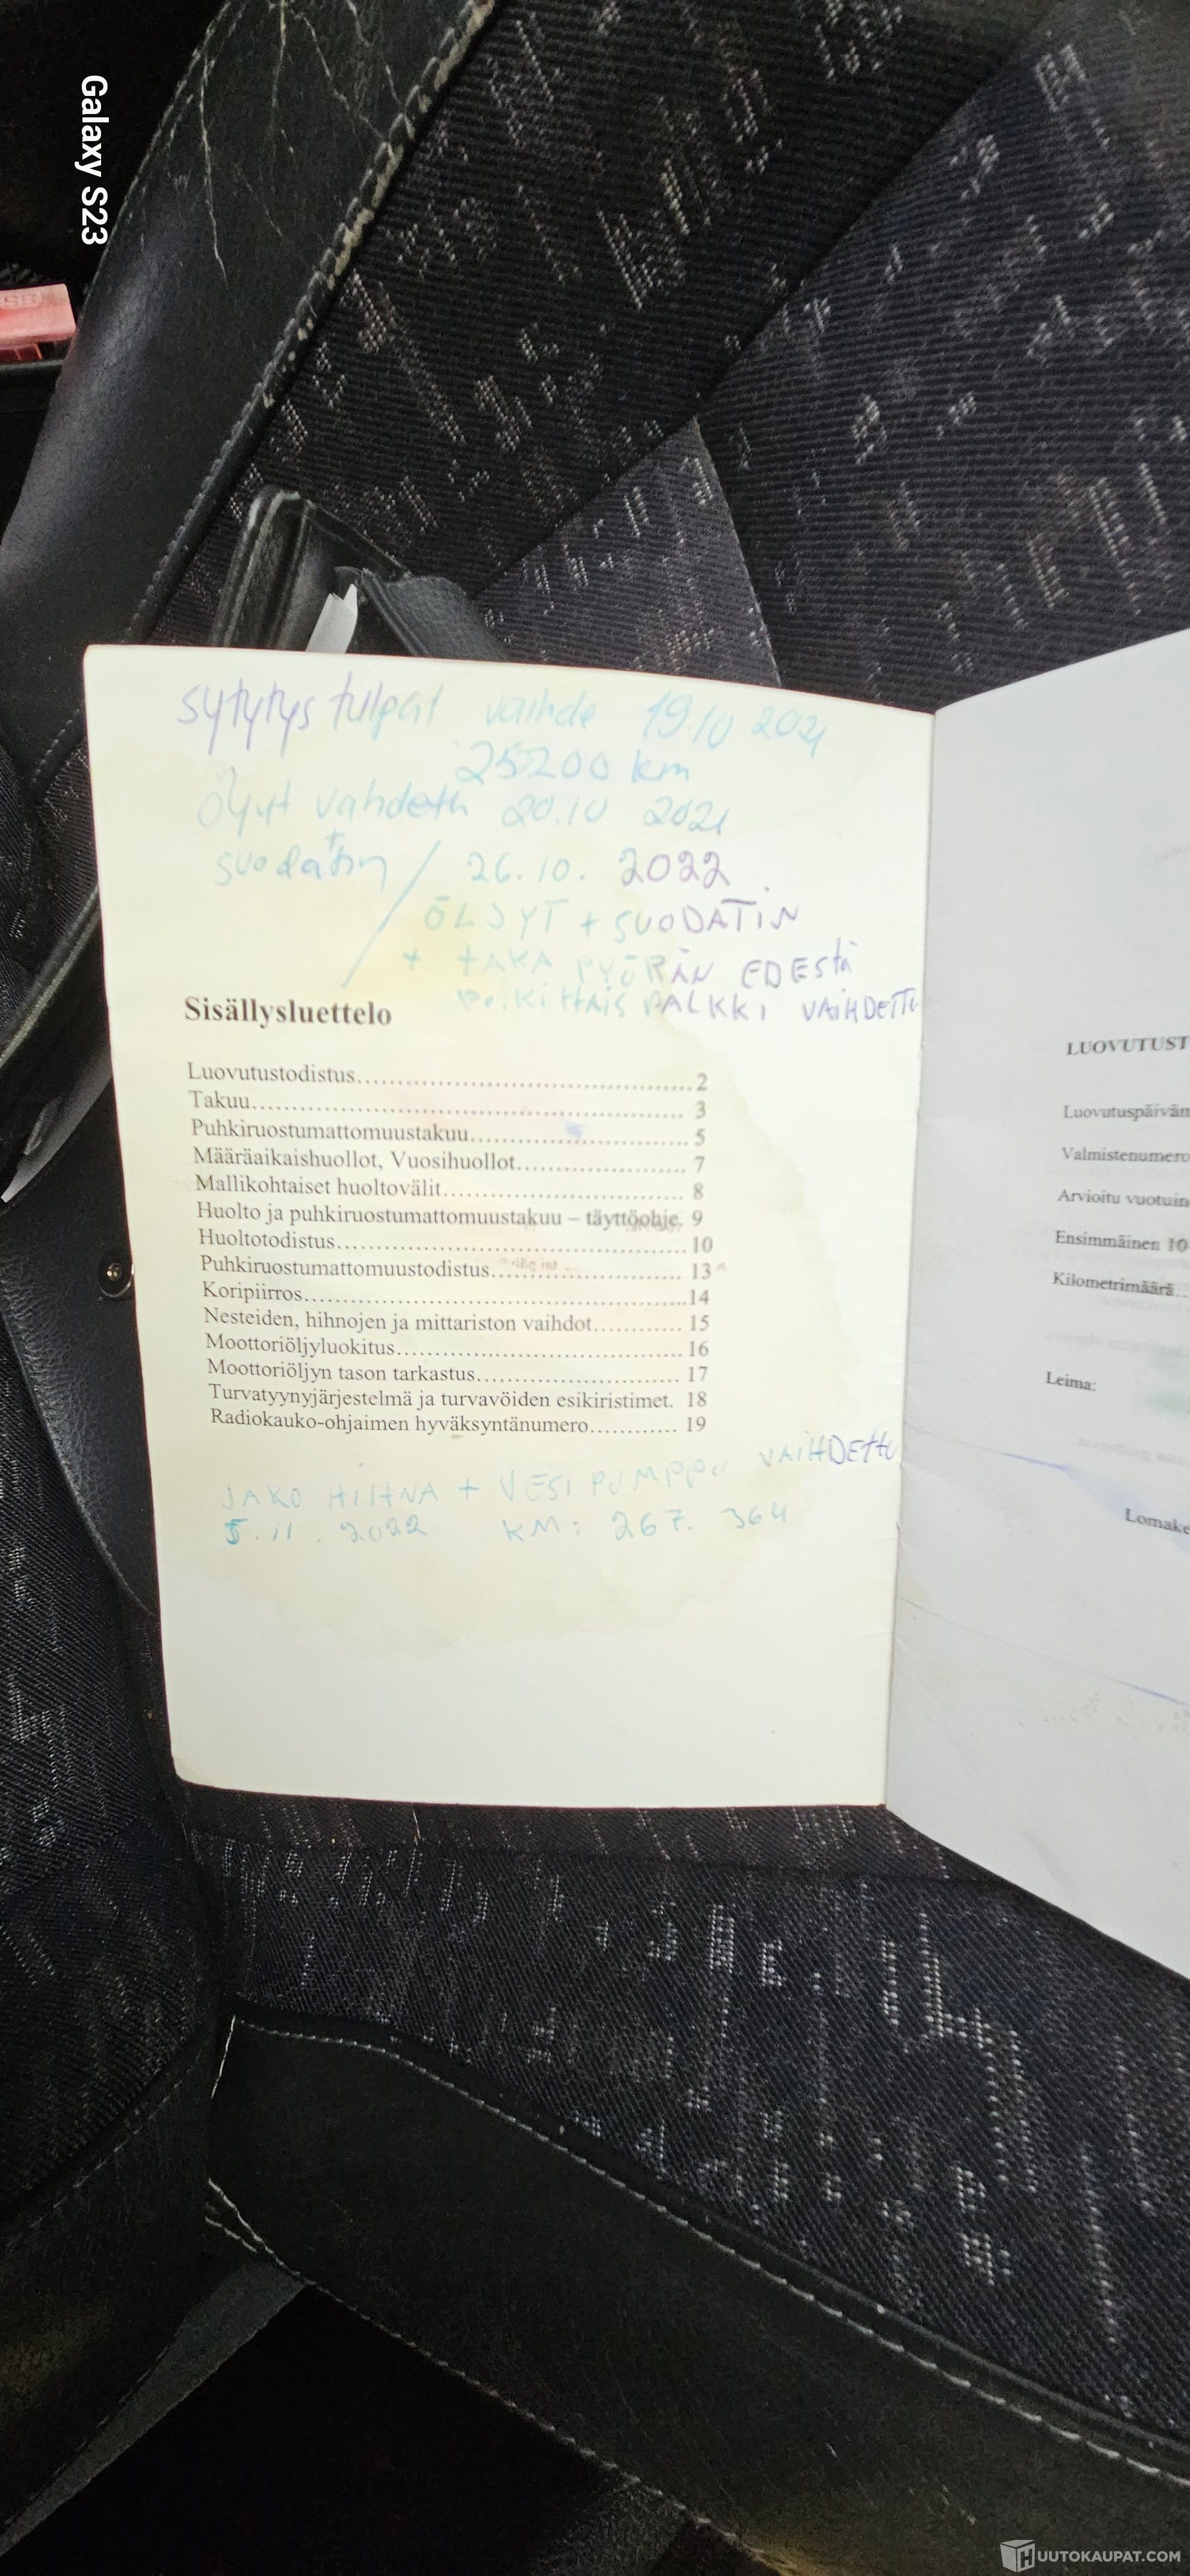 Galaxy S23
sytytys tulpat vaihde 19.10 2021
25200 km
Öljyt vahdettu 20.10 2021
+
suodatin / 26.10. 2022
ÖLJYT + SUODATIN
+ TAKA PYÖRÄN EDEStä
POIKITTAIS PALKKI VAIHDETTU
Sisällysluettelo
Luovutustodistus 2
Takuu 3
Puhkiruostumattomuustakuu 5
Määräaikaishuollot, Vuosihuollot 7
Mallikohtaiset huoltovälit 8
Huolto ja puhkiruostumattomuustakuu – täyttöohje. 9
Huoltotodistus 10
Puhkiruostumattomuustodistus 13
Koripiirros 14
Nesteiden, hihnojen ja mittariston vaihdot 15
Moottoriöljyluokitus 16
Moottoriöljyn tason tarkastus 17
Turvatyynyjärjestelmä ja turvavöiden esikiristimet. 18
Radiokauko-ohjaimen hyväksyntänumero 19
JAKO HIHNA + VESI PUMPPU VAIHDEttu
5.11.2022 KM: 267.364
LUOVUTUST
Luovutuspäiväm
Valmistenumero
Arvioitu vuotuin
Ensimmäinen 10
Kilometrimäärä
Leima:
Lomake
HUUTOKAUPAT.COM